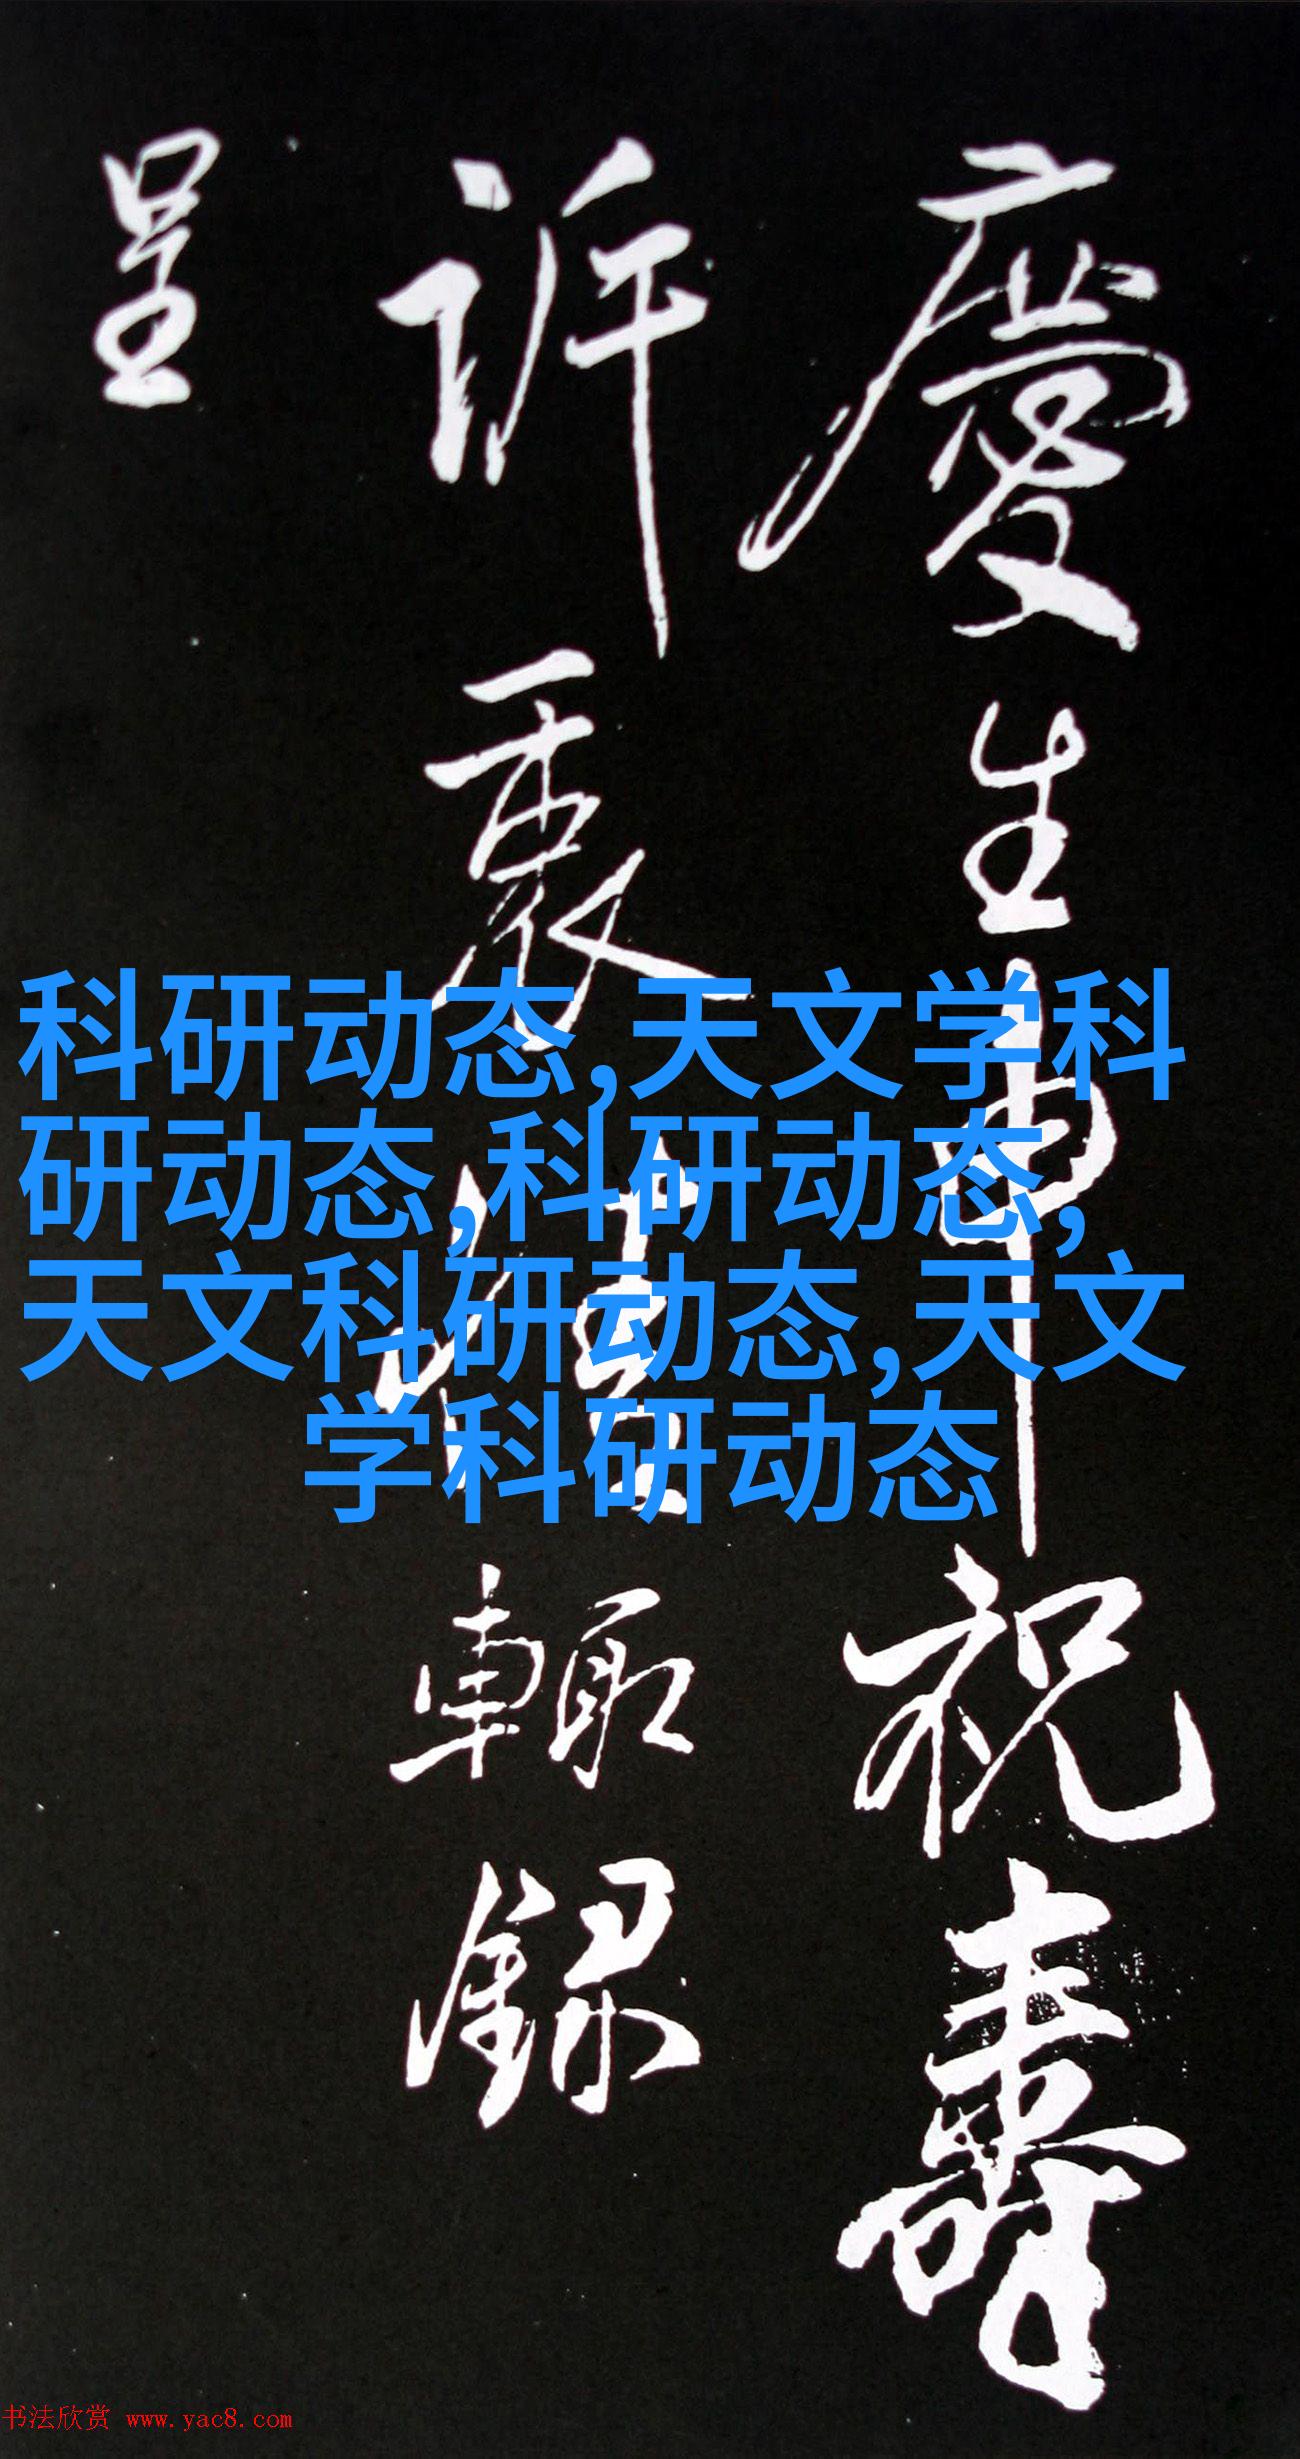 慶生申祝壽
訴衷情輒録
呈
科研动态,天文学科
研动态,科研动态,
天文科研动态,天文
学科研动态
书法欣赏 www.yac8.com